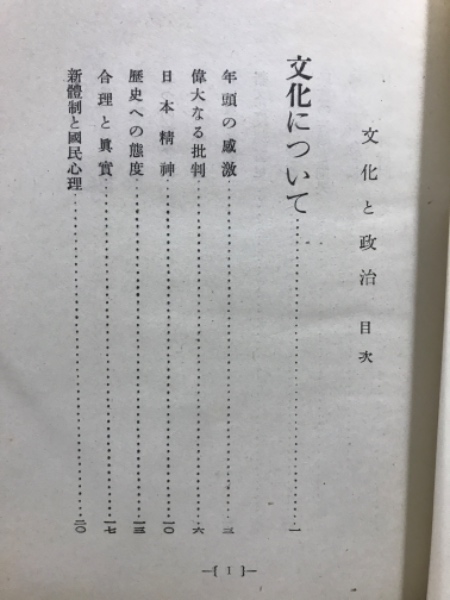 文化と政治 目次
文化について……………………一
年頭の感激……………………三
偉大なる批判……………………六
日本精神……………………一〇
歷史への態度……………………一三
合理と眞實……………………一七
新體制と國民心理……………………二〇
—[ 1 ]—